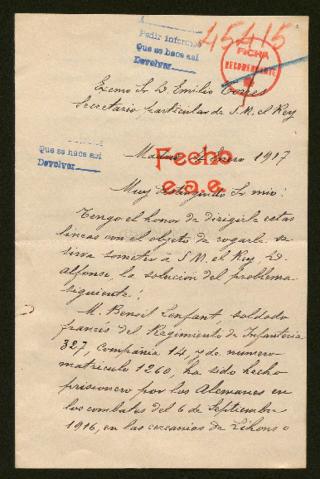 Pedir informes
Que se hace así
Devolver
45415
FICHA
Excmo Sr. D. Emilio Torres
Secretario particular de S. M. el Rey
Que se hace así
Devolver
Madrid Enero 1917
Fecho
e.a.e.
Muy distinguido Sr. mio:
Tengo el honor de dirigirle estas
lineas con el objeto de rogarle se
sirva someter á S. M. el Rey D.
Alfonso, la solución del problema
siguiente:
M. Benoit Lenfant soldado
francés del Regimiento de Infanteria
327, Compañia 14, y de numero
matriculo 1260, ha sido hecho
prisionero por los Alemanes en
los combates del 6 de Septiembre
1916, en las cercanias de Lihons o